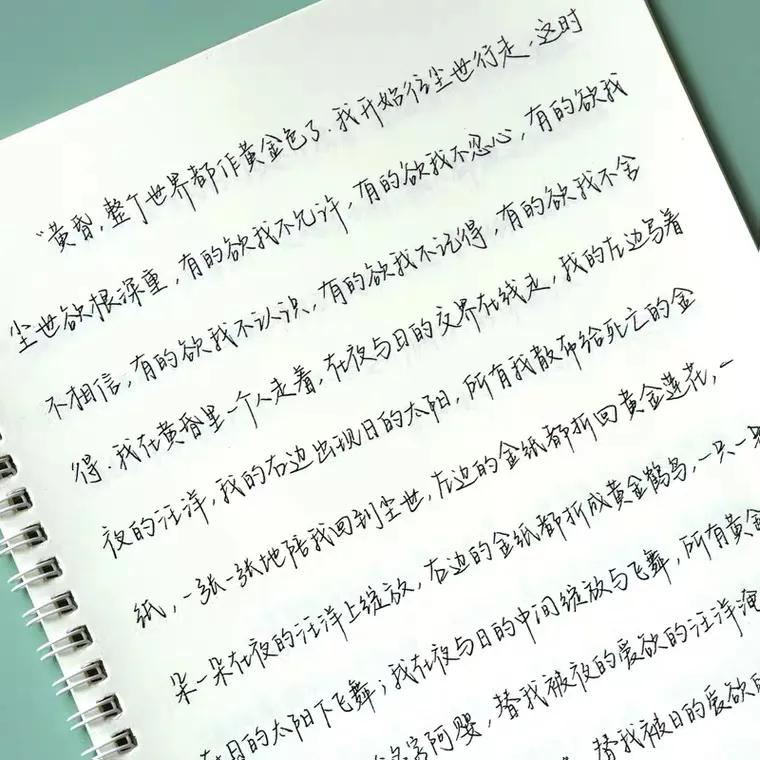 “黄昏,整个世界都作黄金色了.我开始往尘世行走,这时
尘世欲根深重,有的欲我不允许,有的欲我不忍心,有的欲我
不相信,有的欲我不认识,有的欲我不记得,有的欲我不舍
得.我在黄昏里一个人走着,在夜与日的交界在线走,我的左边写着
夜的汪洋,我的右边出现日的太阳,所有我散布给死亡的金
纸,一张一张地陪我回到尘世,左边的金纸都折回黄金莲花,一
朵一朵在夜的汪洋上绽放,右边的金纸都折成黄金鹤鸟,一只一只
在日的太阳下飞舞;我在夜与日的中间绽放与飞舞,所有黄金
阿婴,替我被夜的爱欲的汪洋淹
替我被日的爱欲的